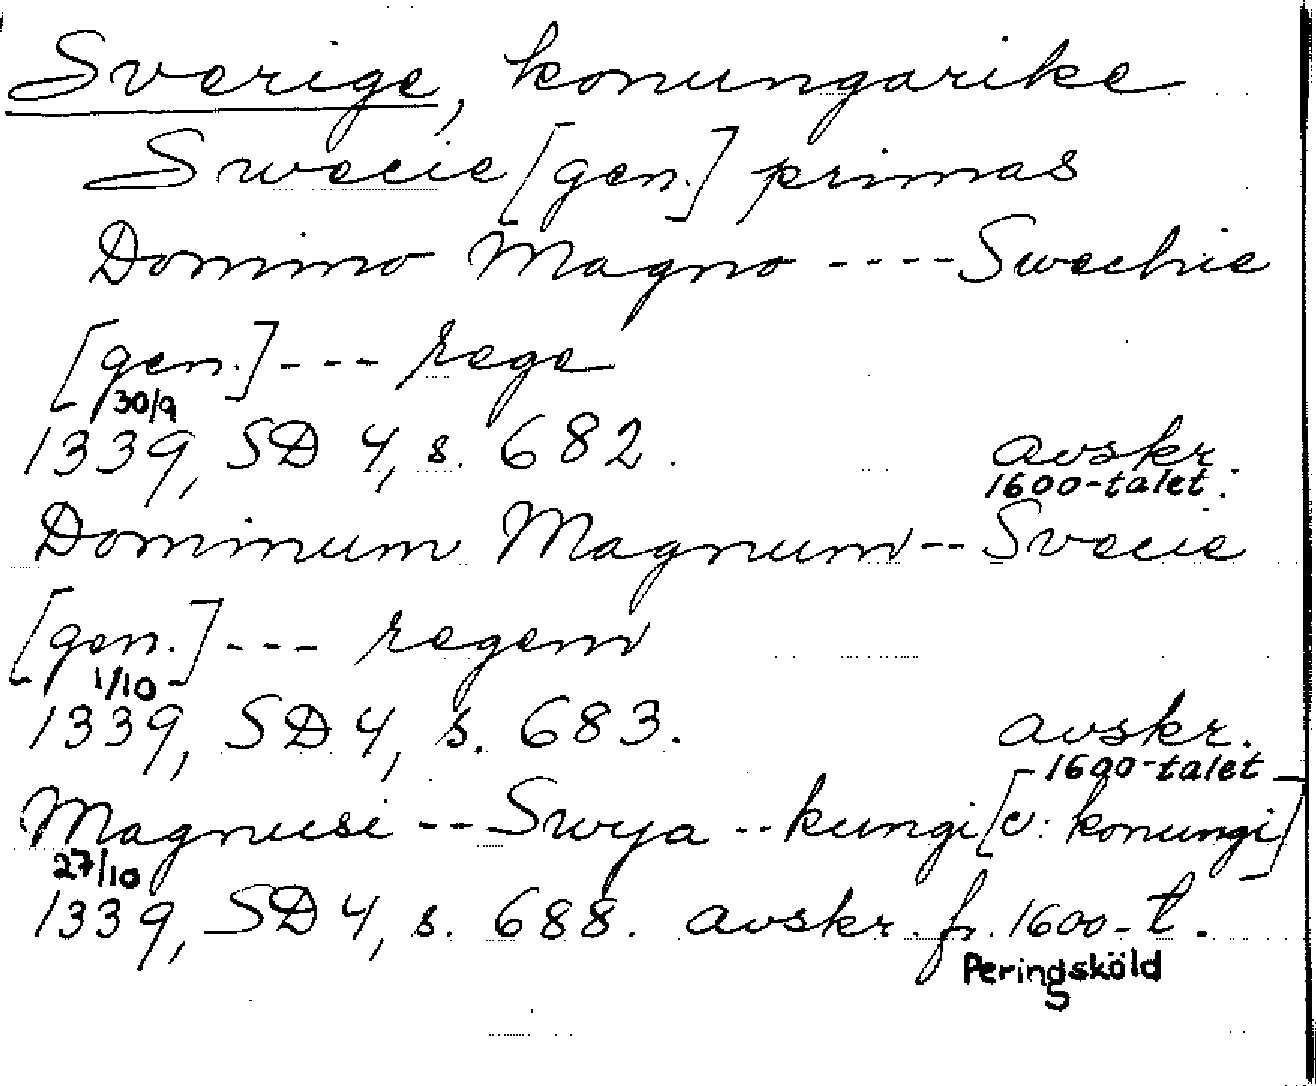 Sverige, konungarike
Swecie [gen.] primas
Domino Magno ---- Swechie
[gen.] --- rege
30/9
1339, SD 4, s. 682. avskr.
1600-talet.
Dominum Magnum -- Svecie
[gen.] --- regem
1/10
1339, SD 4, s. 683. avskr.
1600-talet
Magnusi -- Swya -- kungi [v: konungi]
27/10
1339, SD 4, s. 688. avskr. fr. 1600-t.
Peringsköld